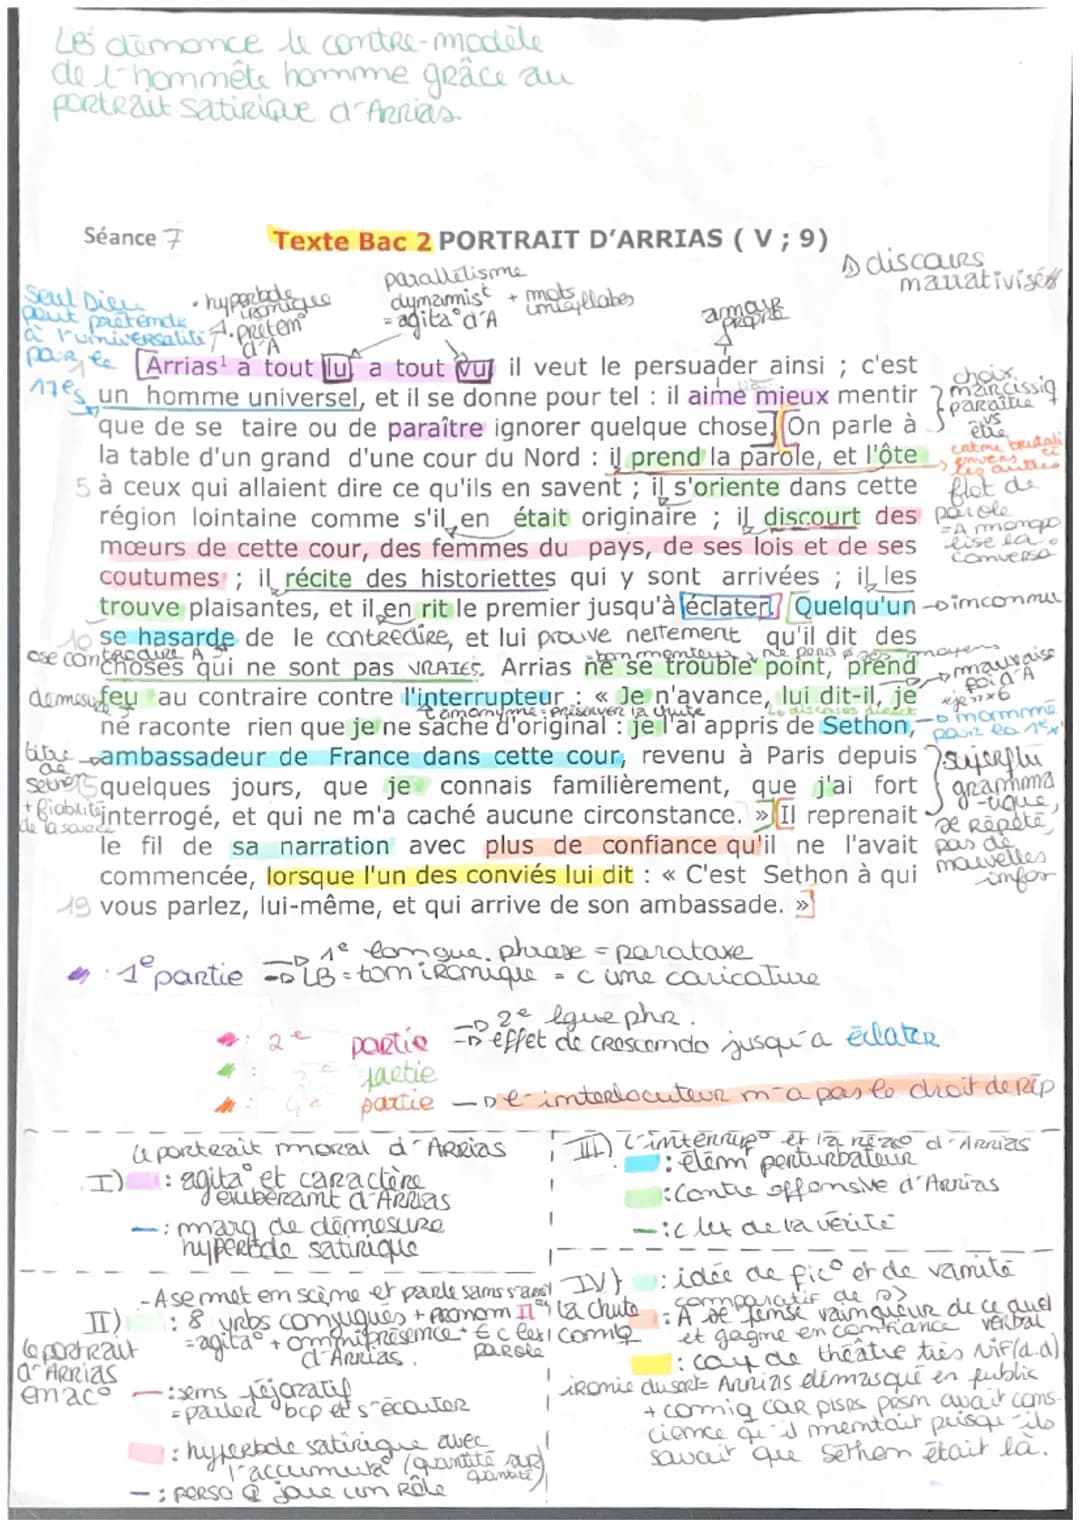 LB dénonce le contre-modèle
de l'honnête homme grâce au
portrait satirique d'Arrias.
Séance 7
Texte Bac 2 PORTRAIT D'ARRIAS ( V ; 9)
→ discours
narrativisés
Seul Dieu
peut prétendre
à l'universalité
par le
17e s
• hyperbole
ironique
• prétent°
d'A
parallélisme
dynamist + mots
unisyllabes
= agita° d'A
amour
propre
[Arrias¹ a tout lu, a tout vu, il veut le persuader ainsi ; c'est
un homme universel, et il se donne pour tel : il aime mieux mentir
que de se taire ou de paraître ignorer quelque chose.] [On parle à
la table d'un grand d'une cour du Nord : il prend la parole, et l'ôte
5 à ceux qui allaient dire ce qu'ils en savent ; il s'oriente dans cette
région lointaine comme s'il en était originaire ; il discourt des
mœurs de cette cour, des femmes du pays, de ses lois et de ses
coutumes ; il récite des historiettes qui y sont arrivées ; il les
trouve plaisantes, et il en rit le premier jusqu'à éclater.] [Quelqu'un
10 se hasarde de le contredire, et lui prouve nettement qu'il dit des
choses qui ne sont pas vraies. Arrias ne se trouble point, prend
feu au contraire contre l'interrupteur : « Je n'avance, lui dit-il, je
ne raconte rien que je ne sache d'original : je l'ai appris de Sethon,
ambassadeur de France dans cette cour, revenu à Paris depuis
15 quelques jours, que je connais familièrement, que j'ai fort
interrogé, et qui ne m'a caché aucune circonstance. »] [Il reprenait
le fil de sa narration avec plus de confiance qu'il ne l'avait
commencée, lorsque l'un des conviés lui dit : « C'est Sethon à qui
19 vous parlez, lui-même, et qui arrive de son ambassade. »]
choix
narcissiq
paraître
vs
être
crime brutali
envers
les autres
flot de
parole
= A monopo
lise la
conversa°
→ inconnu
→ mauvaise
foi d'A
"je" × 6
→ nommé
pour la 1e x
superflu
gramma
-tique,
se répète,
pas de
nouvelles
infos
ose contredire A
démesuré
titre
de
Sethon
+ fiabilité
de la source
préserver la chute
discours direct
: 1e partie → 1e longue phrase = parataxe
→ LB = ton ironique = c une caricature
: 2e partie → 2e lgue phr.
→ effet de crescendo jusqu'à éclater
: 3e partie
: 4e partie → l'interlocuteur n'a pas le droit de rép
le portrait moral d'Arrias
I) : agita° et caractère
exubérant d'Arrias
— : marq de démesure
hyperbole satirique
II)
le portrait
d'Arrias
en ac°
- A se met en scène et parle sans s'arrêt
: 8 vrbs conjugués + pronom Il
= agita° + omniprésence + C lexi
d'Arrias. parole
— : sens péjoratif
= parler bcp et s'écouter
: hyperbole satirique avec
l'accumula° (quantité sur
quantité)
— : perso Q joue un rôle
III) L'interrup° et la réac° d'Arrias
: élém perturbateur
: contre offensive d'Arrias
— : c lex de la vérité
IV)
la chute
comiq
: idée de fic° et de vanité
comparatif de sp
: A se pense vainqueur de ce duel
verbal
et gagne en confiance
: coup de théâtre très vif (d.d)
ironie du sort = Arrias démasqué en public
+ comiq car plsrs pers avait cons-
cience qu'il mentait puisqu'ils
savait que Sethon était là.